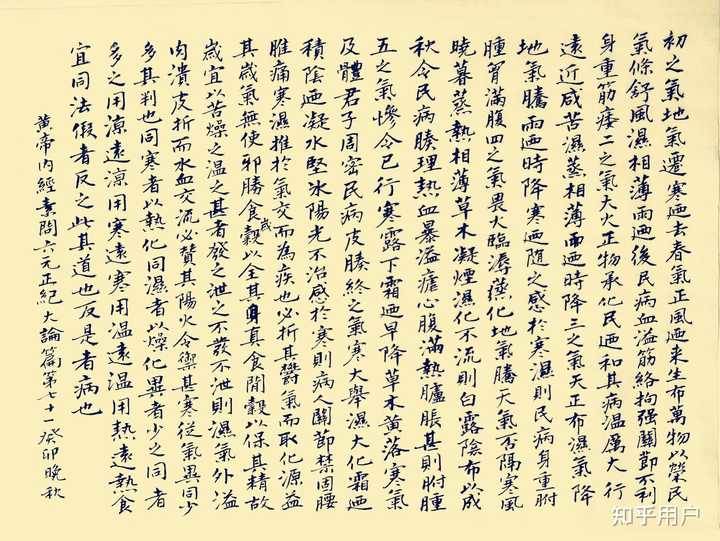 初之氣地氣遷寒迺去春氣正風迺来生布萬物以榮民
氣條舒風濕相薄雨迺後民病血溢筋絡拘强關節不利
身重筋痿二之氣大火正物承化民迺和其病温厲大行
遠近咸苦濕蒸相薄雨迺時降三之氣天正布濕氣降
地氣騰雨迺時降寒迺隨之感於寒濕則民病身重胕
腫胷滿腹四之氣畏火臨溽蒸化地氣騰天氣否隔寒風
曉暮蒸熱相薄草木凝煙濕化不流則白露陰布以成
秋令民病腠理熱血暴溢瘧心腹滿熱臚脹甚則胕腫
五之氣慘令已行寒露下霜迺早降草木黄落寒氣
及體君子周密民病皮腠終之氣寒大舉濕大化霜迺
積陰迺凝水堅冰陽光不治感於寒則病人關節禁固腰
脽痛寒濕推於氣交而為疾也必折其鬱氣而取化源益
其歲氣無使邪勝食歲穀以全其真食間穀以保其精故
歲宜以苦燥之温之甚者發之泄之不發不泄則濕氣外溢
肉潰皮拆而水血交流必贊其陽火令禦甚寒從氣異同少
多其判也同寒者以熱化同濕者以燥化異者少之同者
多之用涼遠涼用寒遠寒用温遠温用熱遠熱食
宜同法假者反之此其道也反是者病也
黄帝内經素問六元正紀大論篇第七十一癸卯晚秋
知乎用户